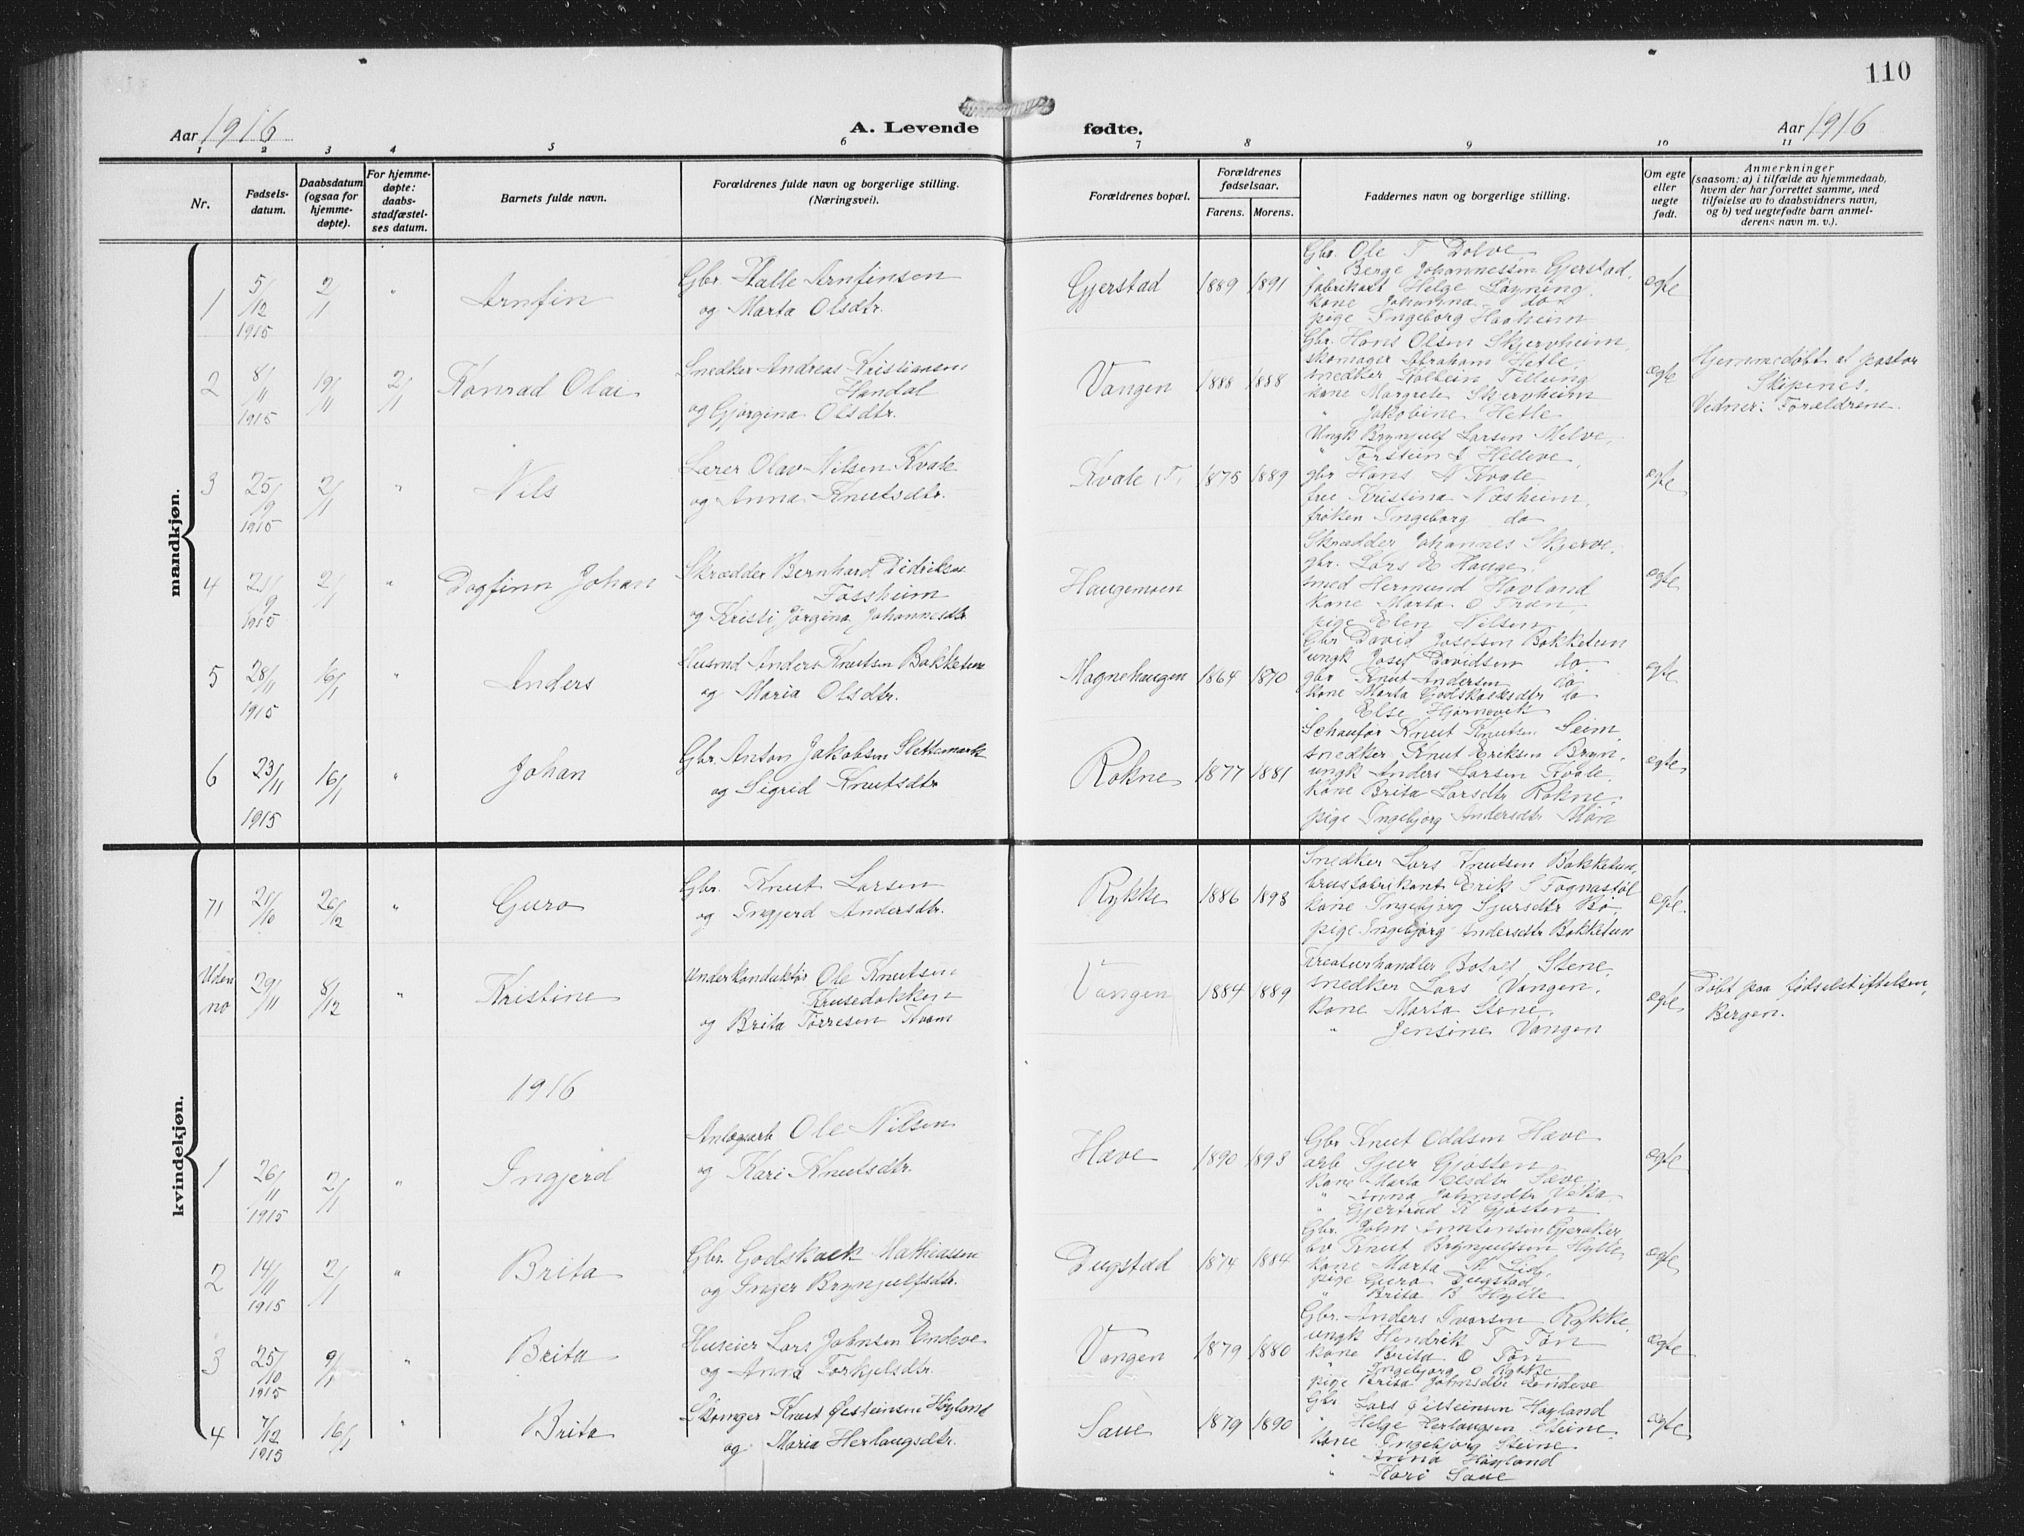 110
Aar 1916
A. Levende
fødte.
Aar 1916
1 2 3 4 5 6 7 8 9 10 11
Nr.
Fødsels-
datum.
Daabsdatum
(ogsaa for
hjemme-
døpte).
For hjemme-
døpte:
daabs-
stadfæstel-
ses datum.
Barnets fulde navn.
Forældrenes fulde navn og borgerlige stilling.
(Næringsvei).
Forældrenes bopæl.
Forældrenes
fødselsaar.
Farens. Morens.
Faddernes navn og borgerlige stilling.
Om egte
eller
uegte
født.
Anmerkninger
(saasom: a) i tilfælde av hjemmedaab,
hvem der har forrettet samme, med
tilføielse av to daabsvidners navn,
og b) ved uegtefødte barn anmel-
derens navn m. v.).
mandkjøn.
1
5/12
1915
2/1
"
Arnfin
Gbr. Halle Arnfinsen
og Marta Olsdtr.
Gjerstad
1889 1891
Gbr. Ole T Dolve
" Berge Johannessen Gjerstad,
fabrikant Helge Løgning,
kone Johanna do
pige Ingeborg Haaheim
egte
2
8/11
1915
19/11
2/1
Konrad Olai
Snedker Andreas Kristiansen
Handal
og Gjørgina Olsdtr.
Vangen
1888 1888
Gbr. Hans Olsen Skjervheim,
skomager Abraham Hetle,
snedker Kolbein Tillung
kone Margrete Skjervheim
" Jakobine Hetle
egte
Hjemmedøbt af pastor
Skipenes.
Vidner: Forældrene.
3
25/9
1915
2/1
"
Nils
Lærer Olav Nilsen Kvale
og Anna Knutsdtr.
Kvale, T,
1875 1889
Ungk Brynjulf Larsen Melve,
" Torstein S Helleve,
gbr Hans N Kvale
frue Kristina Næsheim,
frøken Ingeborg do
egte
4
21/9
1915
2/1
"
Dagfinn Johan
Skrædder Bernhard Didriksen
Fossheim
og Kristi Jørgina Johannesdtr
Haugamoen
Skrædder Johannes Skjerve,
gbr. Lars E Hauge,
smed Hermund Havland
kone Marta O Træn,
pige Elen Nilsen
egte
5
28/11
1915
16/1
"
Anders
Husmd Anders Knutsen Bakketun
og Maria Olsdtr.
Magnehaugen
1864 1870
Gbr David Josefsen Bakketun
ungk Josef Davidsen do.
gbr Knut Andersen do
kone Marta Godskalksdtr do
" Else Hjørnevik
egte
6
23/11
1915
16/1
"
Johan
Gbr. Anton Jakobsen Slettemark
og Sigrid Knutsdtr
Rokne
1877 1881
Schaufør Knut Knutsen Seim,
snedker Knut Eriksen Bryn,
ungk Anders Larsen Kvale,
kone Brita Larsdtr Rokne,
pige Ingebjørg Andersdtr Møn
egte
kvindekjøn.
71
21/10
26/12
"
Guro
Gbr. Knut Larsen
og Ingjerd Andersdtr.
Rykke
1886 1893
Snedker Lars Knutsen Bakketun,
brusfabrikant Erik S Fognastøl
kone Ingebjørg Sjursdtr Bø,
pige Ingebjørg Andersdtr Bakketun
egte.
Uden
no
29/11
8/12
"
Kristine
Underkonduktør Ole Knutsen
Krusedokken
og Brita Torresen Kvam
Vangen
1884 1889
Kreaturhandler Botolf Stene,
snedker Lars Vangen,
kone Marta Stene,
" Jensine Vangen
egte
Døbt paa fødselstiftelsen,
Bergen.
1916
1
26/11
1915
2/1
"
Ingjerd
Anlægsarb Ole Nilsen
og Kari Knutsdtr.
Hæve
1890 1893
Gbr Knut Oddsen Hæve
arb Sjur Gjøsten
kone Marta Elsdtr Hæve
" Anna Johnsdtr Veka
" Gjertrud K Gjøsten
egte
2
14/11
1915
2/1
"
Brita
Gbr. Godskalk Mathiassen
og Inger Brynjulfsdtr.
Dugstad
1874 1884
Gbr. John Arntensen Gjeraker
bv Knut Brynjulfsen Hylle,
kone Marta M Lid,
pige Guro Dugstad,
" Brita B Hylle
egte
3
25/10
1915
9/1
"
Brita
Huseier Lars Johnsen Endeve
og Anna Torkjelsdtr.
Vangen
1879 1880
Gbr. Anders Ivarsen Rykke,
ungk Hendrik T Tøn
kone Brita O Tøn
" Ingebjørg O Rykke
pige Brita Johnsdtr Endeve
egte
4
7/12
1915
16/1
"
Brita
Skomger Knut Østeinsen Høyland
og Maria Herlaugsdtr.
Saue
1879 1890
Gbr Lars Østeinsen Høyland
" Helge Herlaugsen Steine,
kone Ingebjørg Steine
" Anna Høyland
" Kari Saue
egte